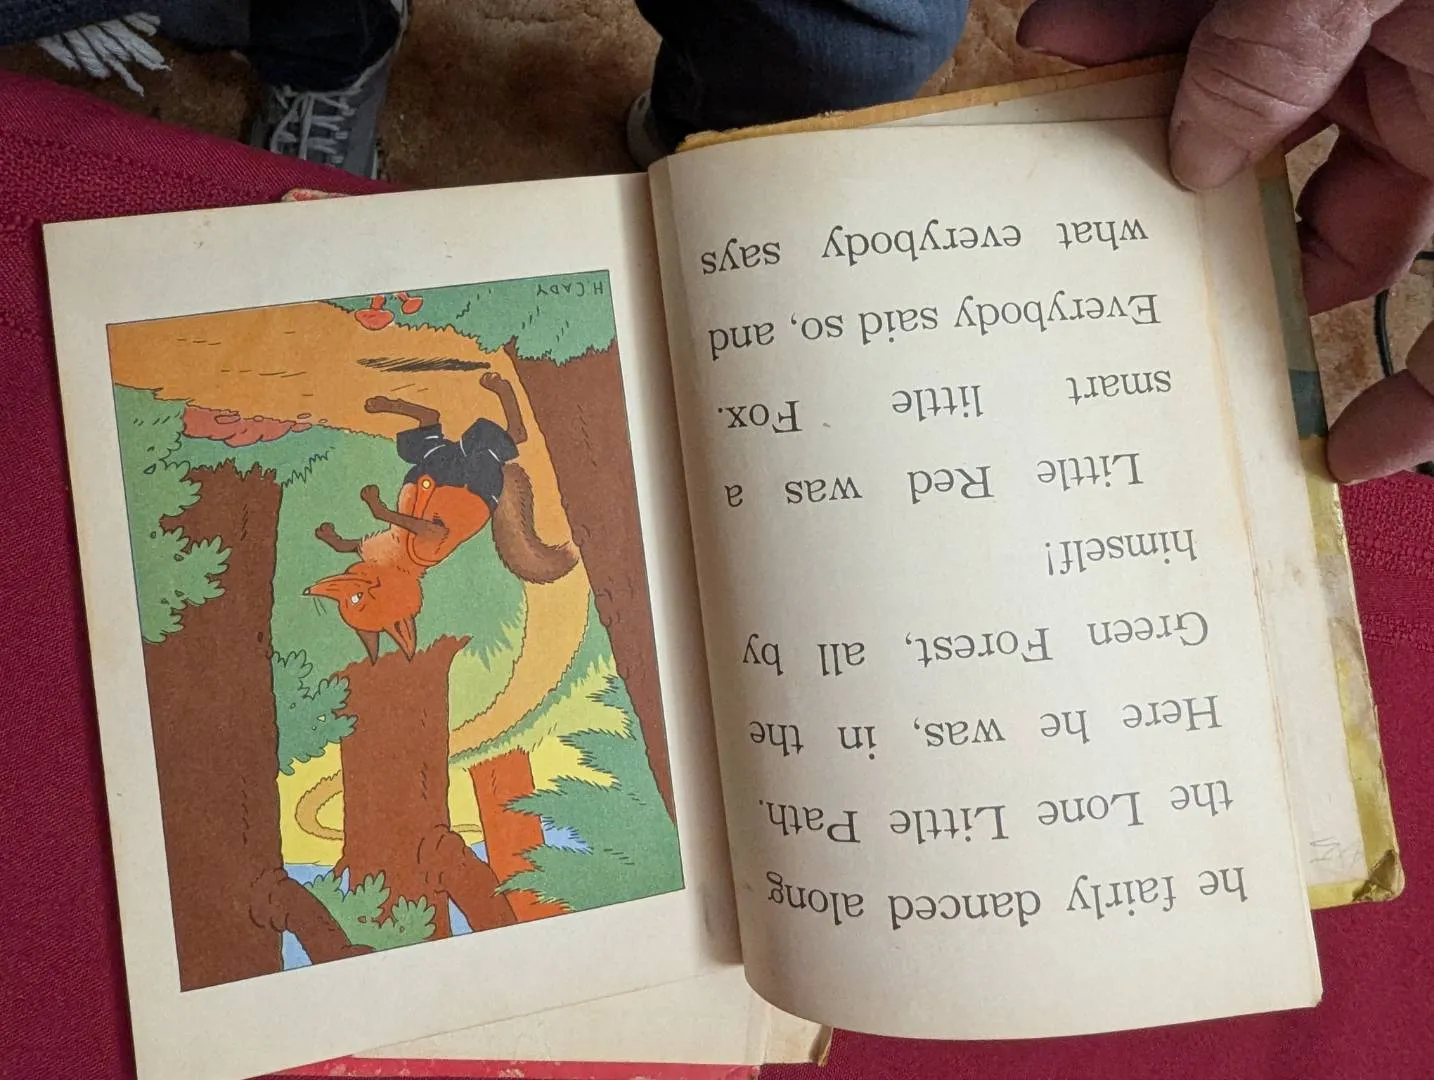 he fairly danced along
the Lone Little Path.
Here he was, in the
Green Forest, all by
himself!
Little Red was a
smart little Fox.
Everybody said so, and
what everybody says
H. CADY